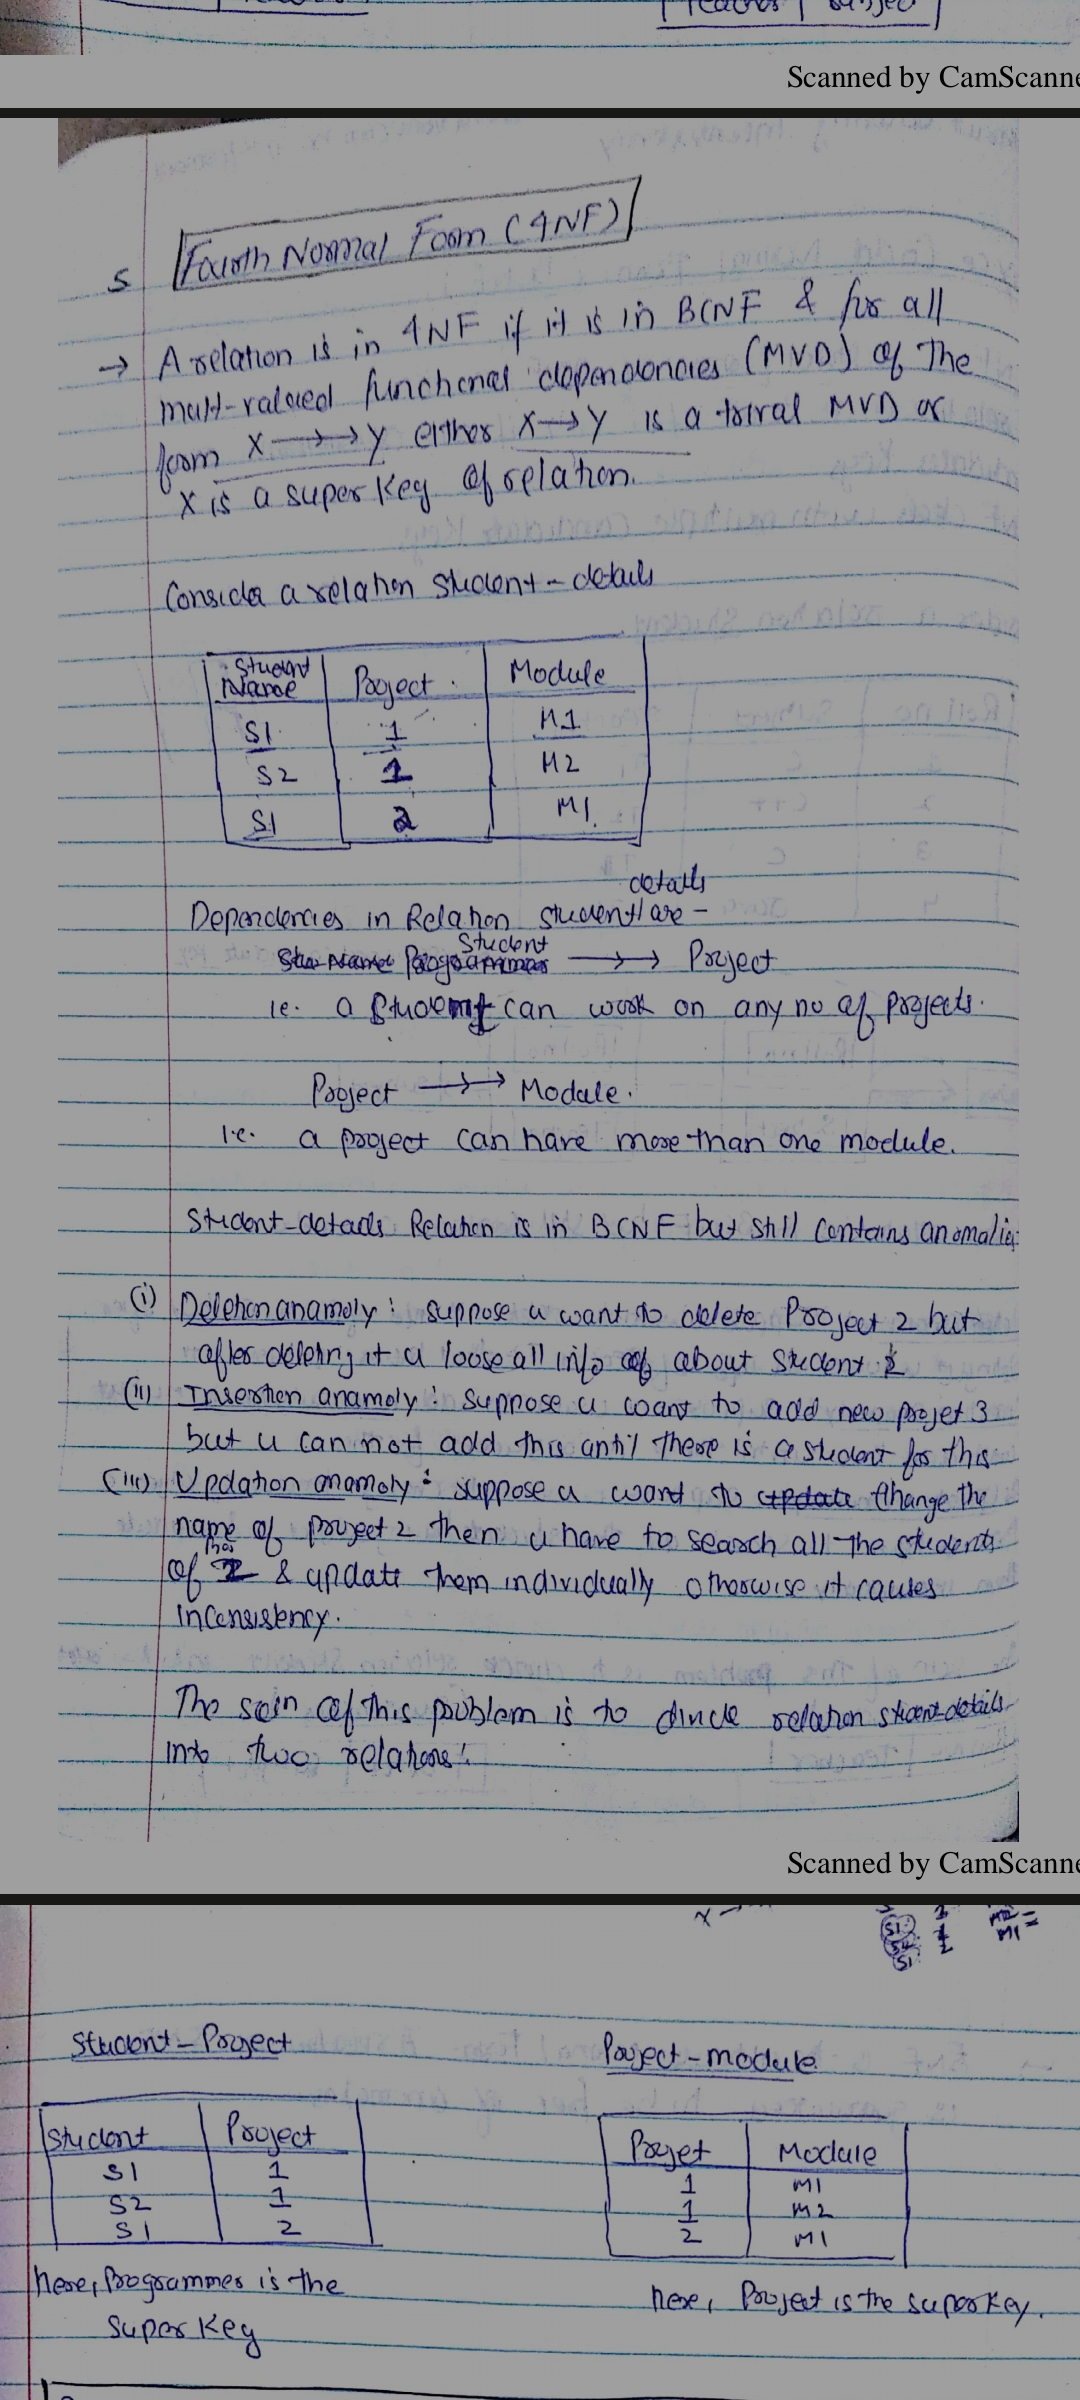 Teacher | Subject
Scanned by CamScanne
5 Fourth Normal Form (4NF)
→ A relation is in 4NF if it is in BCNF & for all
mult-valued functional dependencies (MVD) of The
form X →→ Y either X →→ Y is a trival MVD or
X is a super key of relation.
Consider a relation student-details
Student Name | Project | Module
S1 | 1 | M1
S2 | 1 | M2
S1 | 2 | M1
details
Dependencies in Relation student are –
Student →→ Project
ie. a student can work on any no of projects.
Project →→ Module.
i.e. a project can have more than one module.
Student-details Relation is in BCNF but still contains anomalies
(i) Deletion anamoly: suppose u want to delete Project 2 but
after deleting it u loose all info of about student 2
(ii) Insertion anamoly: suppose u want to add new projet 3
but u can not add this until there is a student for this
(iii) Updation anamoly: suppose u want to update change the
name of project 2 then u have to search all the students
of 2 & update them individually otherwise it causes
inconsistency.
The soln of this problem is to divide relation student-details
into two relations:
Scanned by CamScanne
Student-Project
Project-module
Student | Project
S1 | 1
S2 | 1
S1 | 2
Projet | Module
1 | M1
1 | M2
2 | M1
here, Programmer is the
super key
here, Project is the super key.